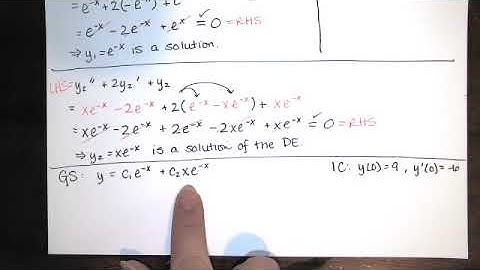 = e⁻ˣ + 2(-e⁻ˣ) + e
= e⁻ˣ - 2e⁻ˣ + e⁻ˣ = 0 = RHS
⇒ y₁ = e⁻ˣ is a solution.
LHS = y₂'' + 2y₂' + y₂
= xe⁻ˣ - 2e⁻ˣ + 2(e⁻ˣ - xe⁻ˣ) + xe⁻ˣ
= xe⁻ˣ - 2e⁻ˣ + 2e⁻ˣ - 2xe⁻ˣ + xe⁻ˣ = 0 = RHS
⇒ y₂ = xe⁻ˣ is a solution of the DE
GS: y = c₁e⁻ˣ + c₂xe⁻ˣ IC: y(0) = 9, y'(0) =